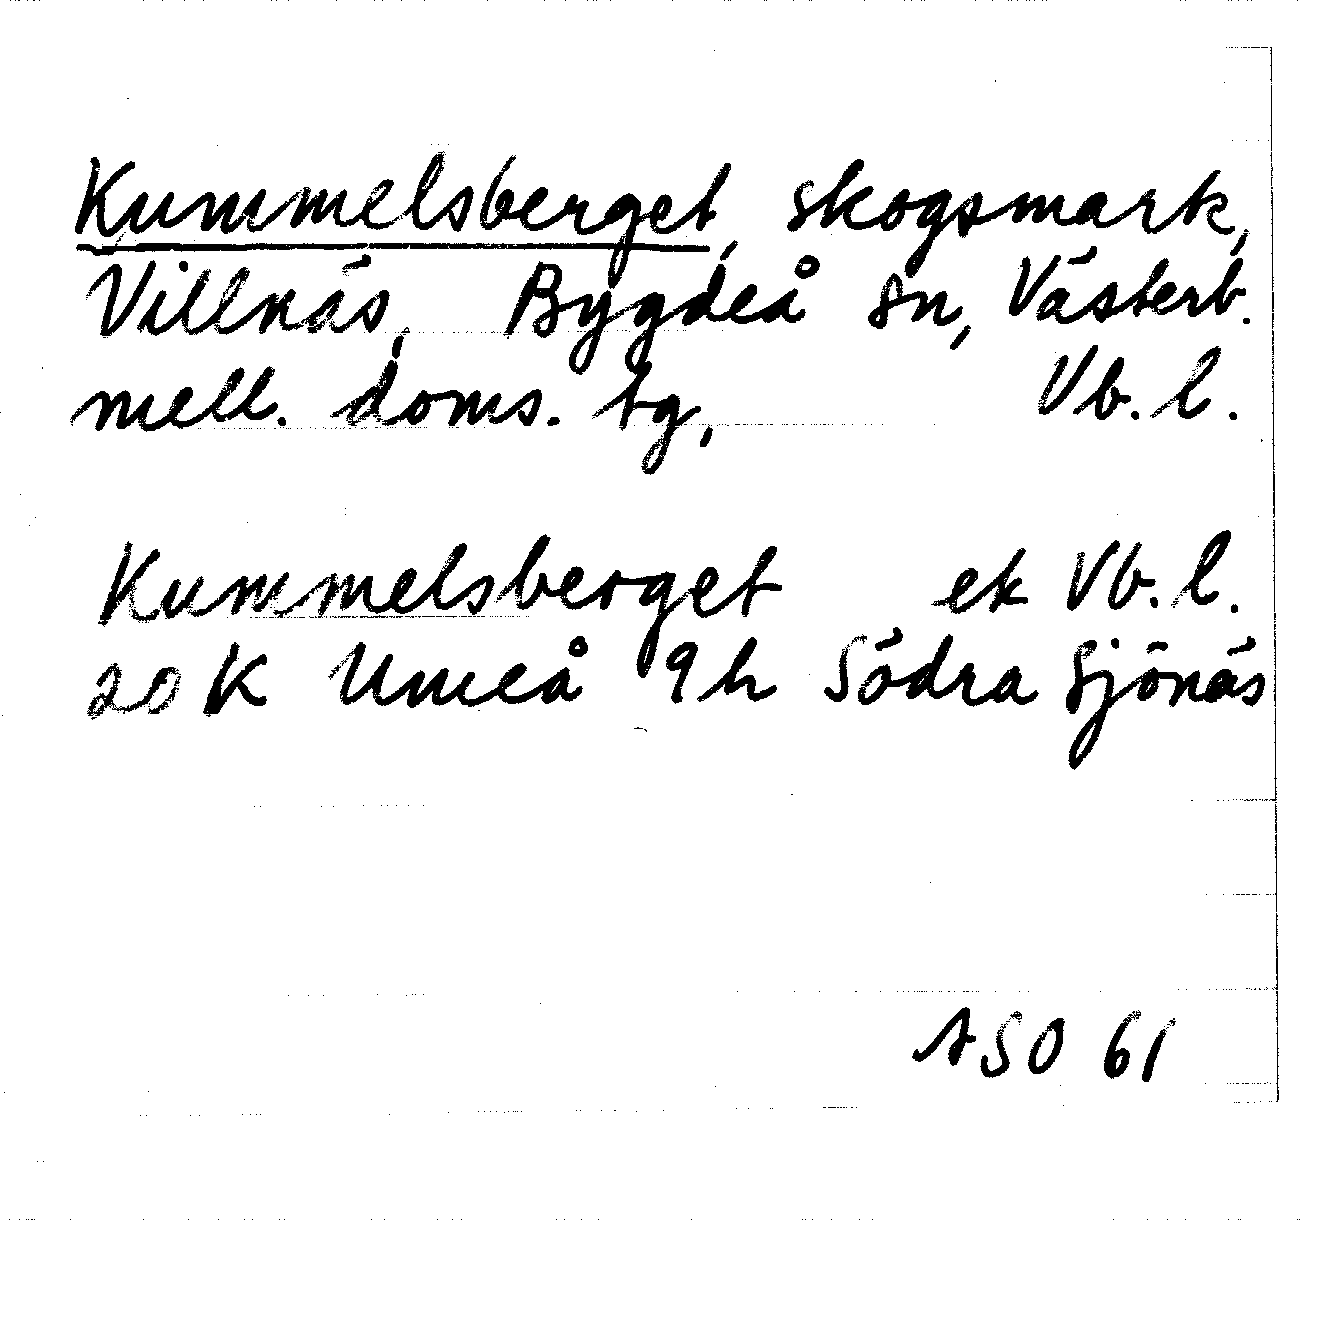 Kummelsberget, skogsmark,
Villnäs, Bygdeå sn, Västerb.
mell. doms. tg, Vb. l.
Kummelsberget ek Vb. l.
20 K Umeå 9 h Södra Sjönäs
ASO 61